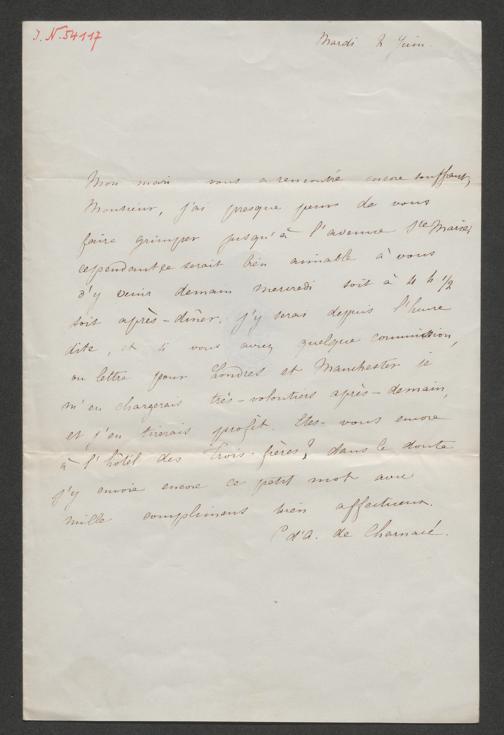 J. N. 54117
Mardi 2 Juin.
Mon mari vous a rencontré encore souffrant,
Monsieur, j'ai presque peur de vous
faire grimper jusqu'à l'avenue Ste Marie;
cependant ce serait bien aimable à vous
d'y venir demain mercredi soit à 4 h 1/2
soit après-dîner. J'y serai depuis l'heure
dite, et si vous aviez quelque commission,
ou lettre pour Londres et Manchester je
m'en chargerais très-volontiers après-demain,
et j'en tirerais profit. Etes-vous encore
à l'hôtel des Trois-frères? dans le doute
j'y envoie encore ce petit mot avec
mille compliments bien affectueux.
C d'A. de Charnacé.